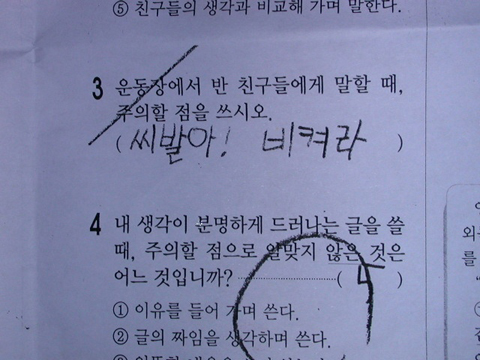 ⑤ 친구들의 생각과 비교해 가며 말한다.
3 운동장에서 반 친구들에게 말할 때,
주의할 점을 쓰시오.
( 씨발아! 비켜라 )
4 내 생각이 분명하게 드러나는 글을 쓸
때, 주의할 점으로 알맞지 않은 것은
어느 것입니까? ( 4 )
① 이유를 들어 가며 쓴다.
② 글의 짜임을 생각하며 쓴다.